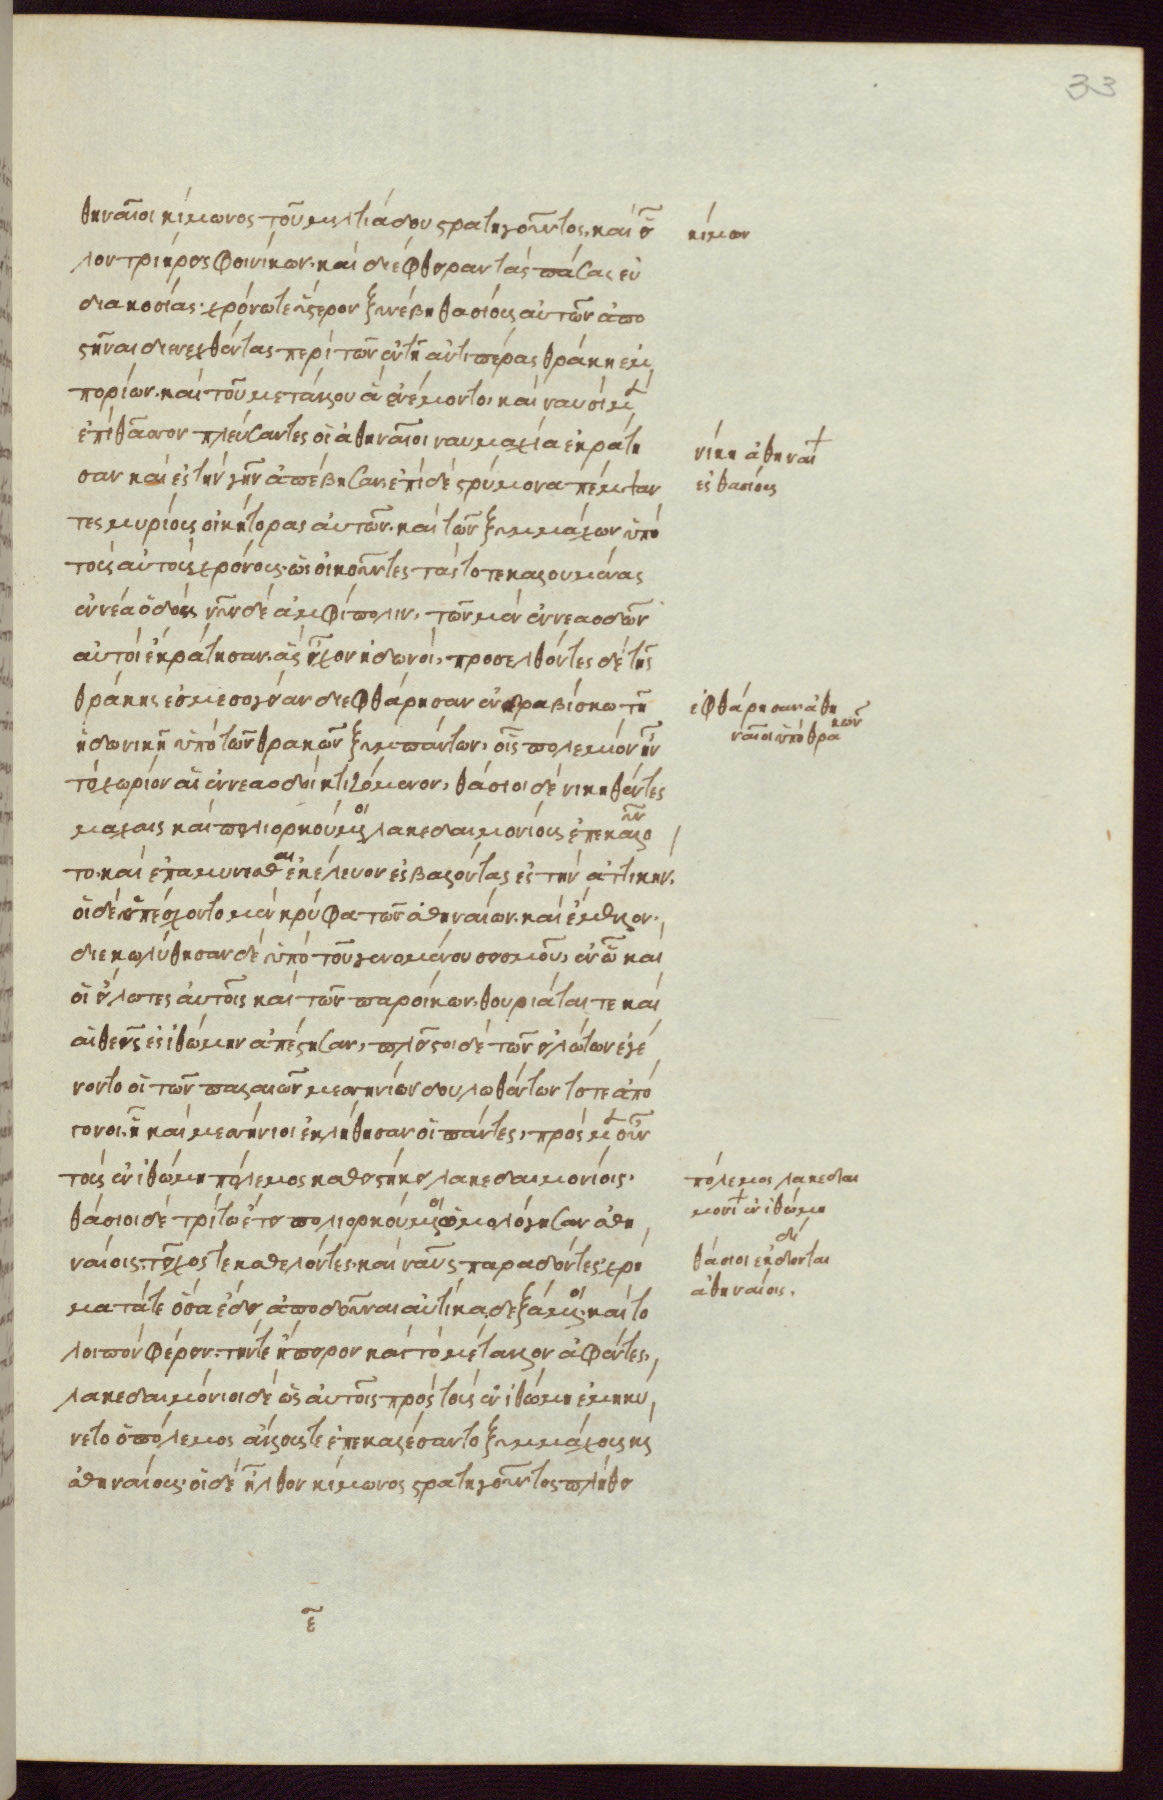 33
θηναῖοι κίμωνος τοῦ μιλτιάδου στρατηγοῦντος. καὶ εἷ
κίμων
λον τριήρεις φοινίκων. καὶ διέφθειραν τὰς πάσας εἰς
διακοσίας. χρόνω τε ὕστερον ξυνέβη θασίοις αὐτῶν ἀπο
στῆναι διενεχθέντας περὶ τῶν ἐν τῆ ἀντιπέρας θράκη ἐμ
πορίων. καὶ τοῦ μετάλλου ἃ ἐνέμοντο. καὶ ναυσὶ μὲν
ἐπὶ θάσον πλεύσαντες οἱ ἀθηναῖοι ναυμαχία ἐκράτη
νίκη ἀθηναί
σαν καὶ ἐς τὴν γῆν ἀπέβησαν. ἐπὶ δὲ στρύμονα πέμψαν
ἐς θασίους
τες μυρίους οἰκήτορας αὐτῶν. καὶ τῶν ξυμμάχων ὑπὸ
τοὺς αὐτοὺς χρόνους. ὡς οἰκοῦντες τὰς τότε καλουμένας
ἐννέα ὁδούς νῦν δὲ ἀμφίπολιν. τῶν μὲν ἐννέα ὁδῶν
αὐτοὶ ἐκράτησαν. ἃς εἶχον ἠδωνοί. προσελθόντες δὲ τῆς
θράκης ἐς μεσογείαν διεφθάρησαν ἐν δραβίσκω τῆ
ἐφθάρησαν ἀθη
ναῖοι ὑπὸ θρακῶν
ἠδωνικῆ ὑπὸ τῶν θρακῶν ξυμπάντων. οἷς πολέμιον ἦν
τὸ χωρίον αἱ ἐννέα ὁδοὶ κτιζόμενον. θάσιοι δὲ νικηθέντες
μάχαις καὶ πολιορκούμενοι λακεδαιμονίους ἐπεκαλοῦν
το. καὶ ἐπαμύνειν ἐκέλευον ἐσβαλόντας ἐς τὴν ἀττικήν.
οἱ δὲ ὑπέσχοντο μὲν κρύφα τῶν ἀθηναίων. καὶ ἔμελλον.
διεκωλύθησαν δὲ ὑπὸ τοῦ γενομένου σεισμοῦ. ἐν ᾧ καὶ
οἱ εἵλωτες αὐτοῖς καὶ τῶν παροίκων. θουριάται τε καὶ
αἰθεεῖς ἐς ἰθώμην ἀπέστησαν. πλεῖστοι δὲ τῶν εἱλώτων ἐγέ
νοντο οἱ τῶν παλαιῶν μεσσηνίων δουλωθέντων τότε ἀπό
γονοι. ᾗ καὶ μεσσήνιοι ἐκλήθησαν οἱ πάντες. πρὸς μὲν οὖν
τοὺς ἐν ἰθώμη πόλεμος καθειστήκει λακεδαιμονίοις.
πόλεμος λακεδαι
μονί ἐν ἰθώμη
θάσιοι δὲ τρίτω ἔτει πολιορκούμενοι ὡμολόγησαν ἀθη
ναίοις. τεῖχός τε καθελόντες. καὶ ναῦς παραδόντες. χρή
θάσιοι ἐκδίδονται
ἀθηναίοις.
ματά τε ὅσα ἔδει ἀποδοῦναι αὐτίκα δεξάμενοι. καὶ τὸ
λοιπὸν φέρειν. τήν τε ἤπειρον καὶ τὸ μέταλλον ἀφέντες.
λακεδαιμόνιοι δὲ ὡς αὐτοῖς πρὸς τοὺς ἐν ἰθώμη ἐμηκύ
νετο ὁ πόλεμος ἄλλους τε ἐπεκαλέσαντο ξυμμάχους καὶ
ἀθηναίους. οἱ δὲ ἦλθον κίμωνος στρατηγοῦντος πλήθει
ε